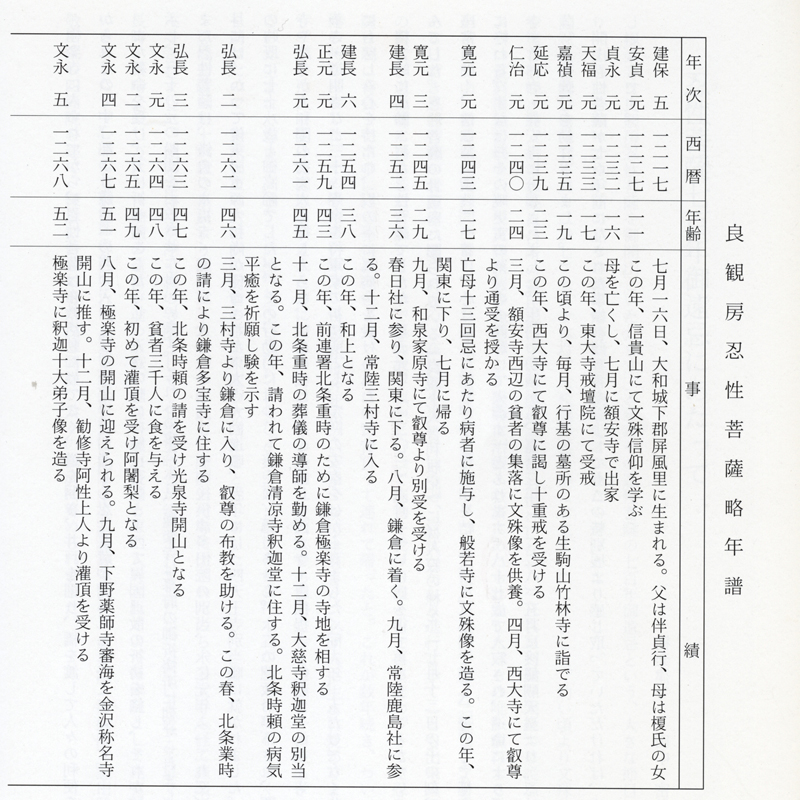 良観房忍性菩薩略年譜
年次 西暦 年齢 事績
建保 五 一二一七 七月一六日、大和城下郡屏風里に生まれる。父は伴貞行、母は榎氏の女
安貞 元 一二二七 一一 この年、信貴山にて文殊信仰を学ぶ
貞永 元 一二三二 一六 母を亡くし、七月に額安寺で出家
天福 元 一二三三 一七 この年、東大寺戒壇院にて受戒
嘉禎 元 一二三五 一九 この頃より、毎月、行基の墓所のある生駒山竹林寺に詣でる
延応 元 一二三九 二三 この年、西大寺にて叡尊に謁し十重戒を受ける
仁治 元 一二四〇 二四 三月、額安寺西辺の貧者の集落に文殊像を供養。四月、西大寺にて叡尊
より通受を授かる
寛元 元 一二四三 二七 亡母十三回忌にあたり病者に施与し、般若寺に文殊像を造る。この年、
関東に下り、七月に帰る
寛元 三 一二四五 二九 九月、和泉家原寺にて叡尊より別受を受ける
建長 四 一二五二 三六 春日社に参り、関東に下る。八月、鎌倉に着く。九月、常陸鹿島社に参
る。十二月、常陸三村寺に入る
建長 六 一二五四 三八 この年、和上となる
正元 元 一二五九 四三 この年、前連署北条重時のために鎌倉極楽寺の寺地を相する
弘長 元 一二六一 四五 十一月、北条重時の葬儀の導師を勤める。十二月、大慈寺釈迦堂の別当
となる。この年、請われて鎌倉清凉寺釈迦堂に住する。北条時頼の病気
平癒を祈願し験を示す
弘長 二 一二六二 四六 三月、三村寺より鎌倉に入り、叡尊の布教を助ける。この春、北条業時
の請により鎌倉多宝寺に住する
弘長 三 一二六三 四七 この年、北条時頼の請を受け光泉寺開山となる
文永 元 一二六四 四八 この年、貧者三千人に食を与える
文永 二 一二六五 四九 この年、初めて灌頂を受け阿闍梨となる
文永 四 一二六七 五一 八月、極楽寺の開山に迎えられる。九月、下野薬師寺審海を金沢称名寺
開山に推す。十二月、勧修寺阿性上人より灌頂を受ける
文永 五 一二六八 五二 極楽寺に釈迦十大弟子像を造る